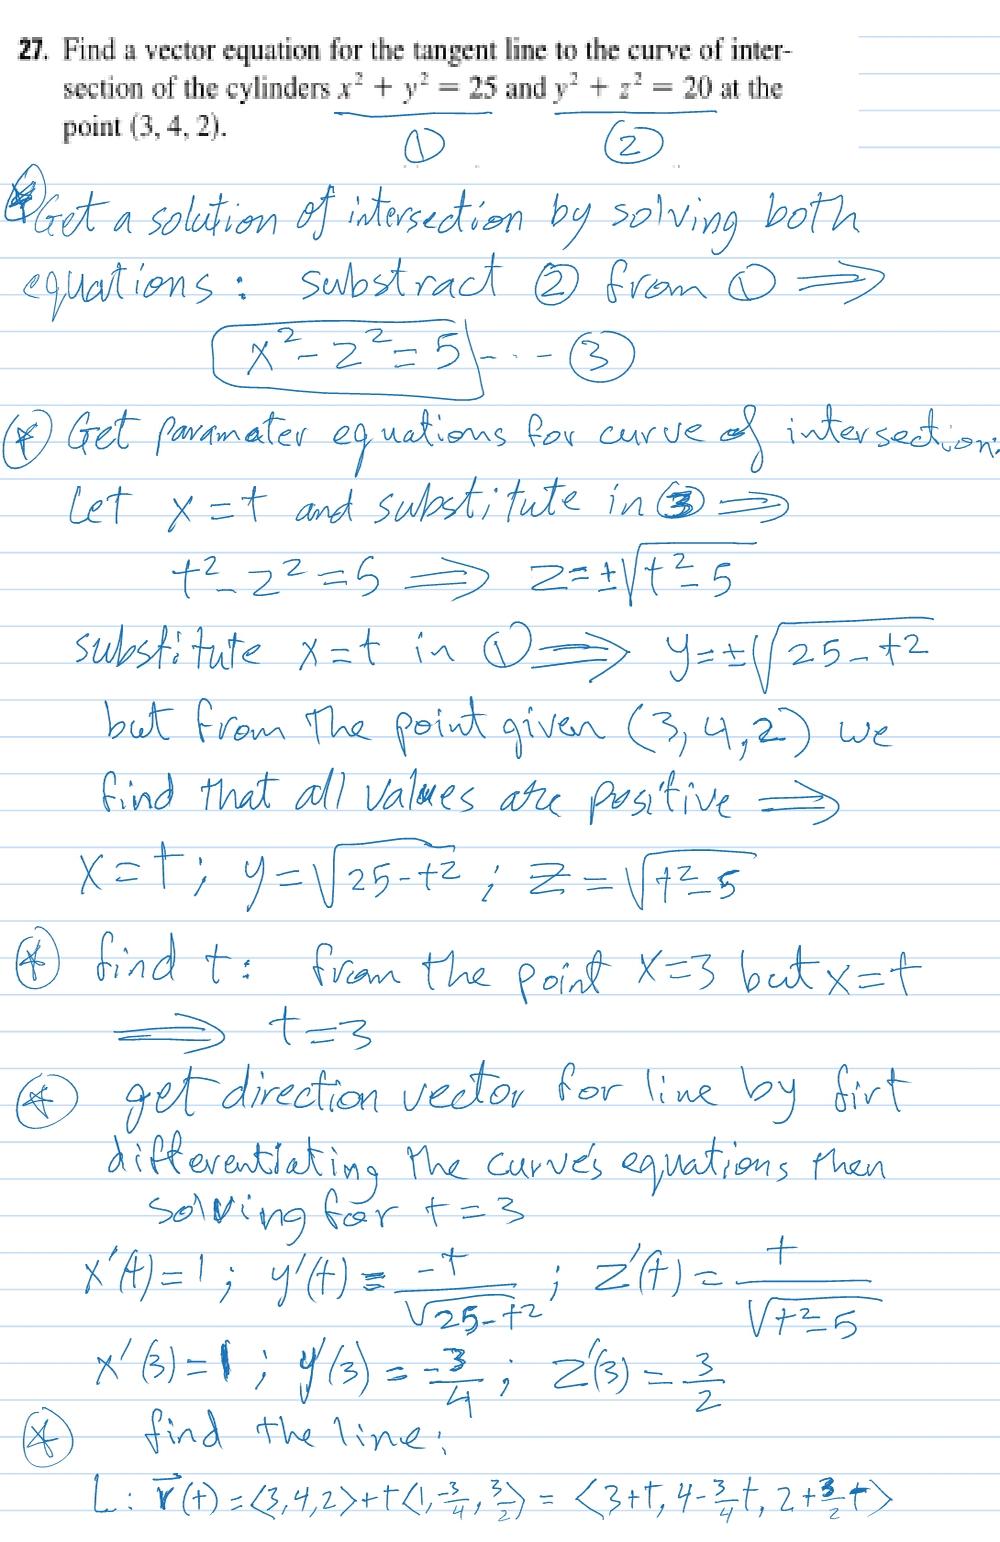 27. Find a vector equation for the tangent line to the curve of inter-
section of the cylinders x² + y² = 25 and y² + z² = 20 at the
point (3, 4, 2).
① ②
Get a solution of intersection by solving both
equations: substract ② from ① ⟹
x² - z² = 5 --- ③
(*) Get paramater equations for curve of intersection:
Let x = t and substitute in ③ ⟹
t² - z² = 5 ⟹ z = ±√(t² - 5)
substitute x = t in ① ⟹ y = ±√(25 - t²)
but from the point given (3, 4, 2) we
find that all values are positive ⟹
x = t; y = √(25 - t²); z = √(t² - 5)
(*) find t: from the point x = 3 but x = t
⟹ t = 3
(*) get direction vector for line by firt
differentiating the curve's equations then
solving for t = 3
x'(t) = 1; y'(t) = -t/√(25 - t²); z'(t) = t/√(t² - 5)
x'(3) = 1; y'(3) = -3/4; z'(3) = 3/2
(*) find the line:
L: r⃗(t) = <3,4,2> + t<1, -3/4, 3/2> = <3+t, 4 - 3/4 t, 2 + 3/2 t>